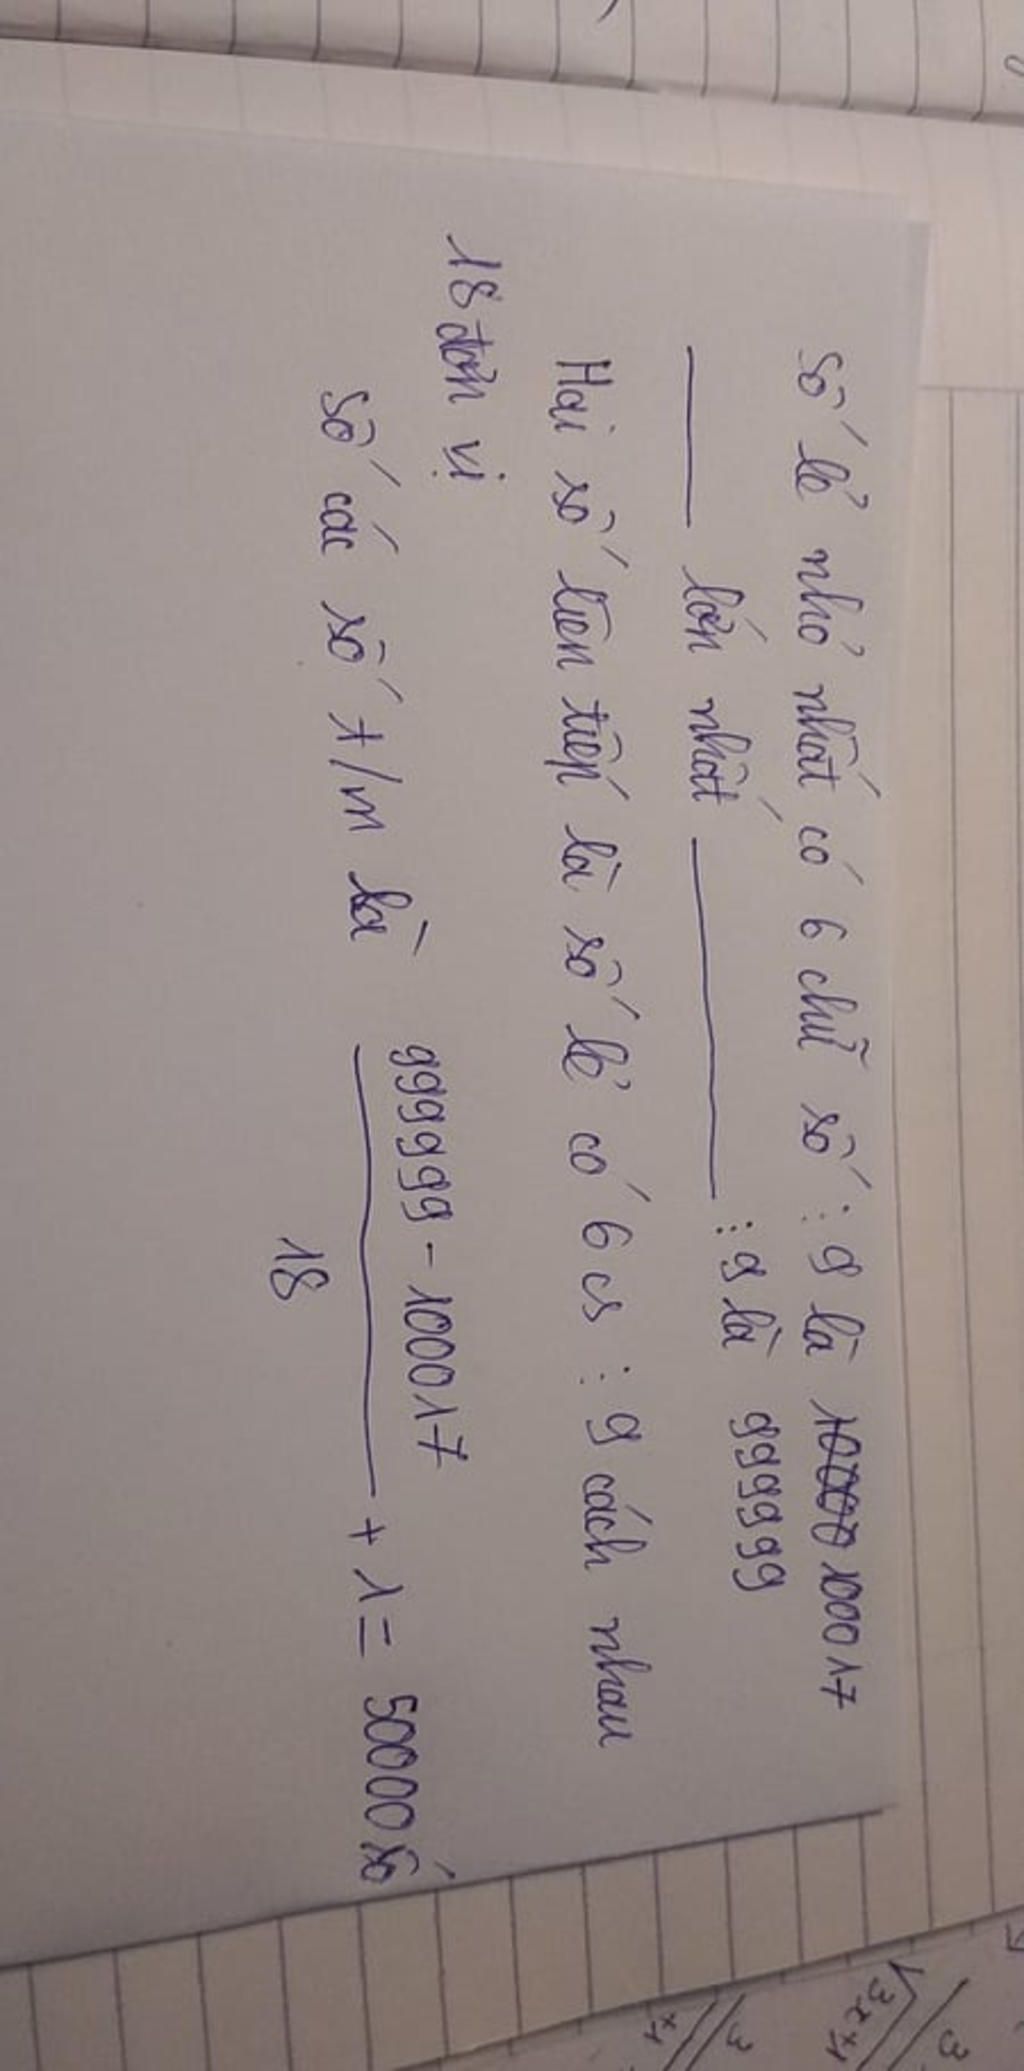 Số lẻ nhỏ nhất có 6 chữ số ⋮ 9 là 100017
——— lớn nhất ——————— ⋮ 9 là 999999
Hai số liên tiếp là số lẻ có 6 cs ⋮ 9 cách nhau
18 đơn vị
Số các số t/m là (999999 - 100017)/18 + 1 = 50000 số
3
√3x+1
3
+1